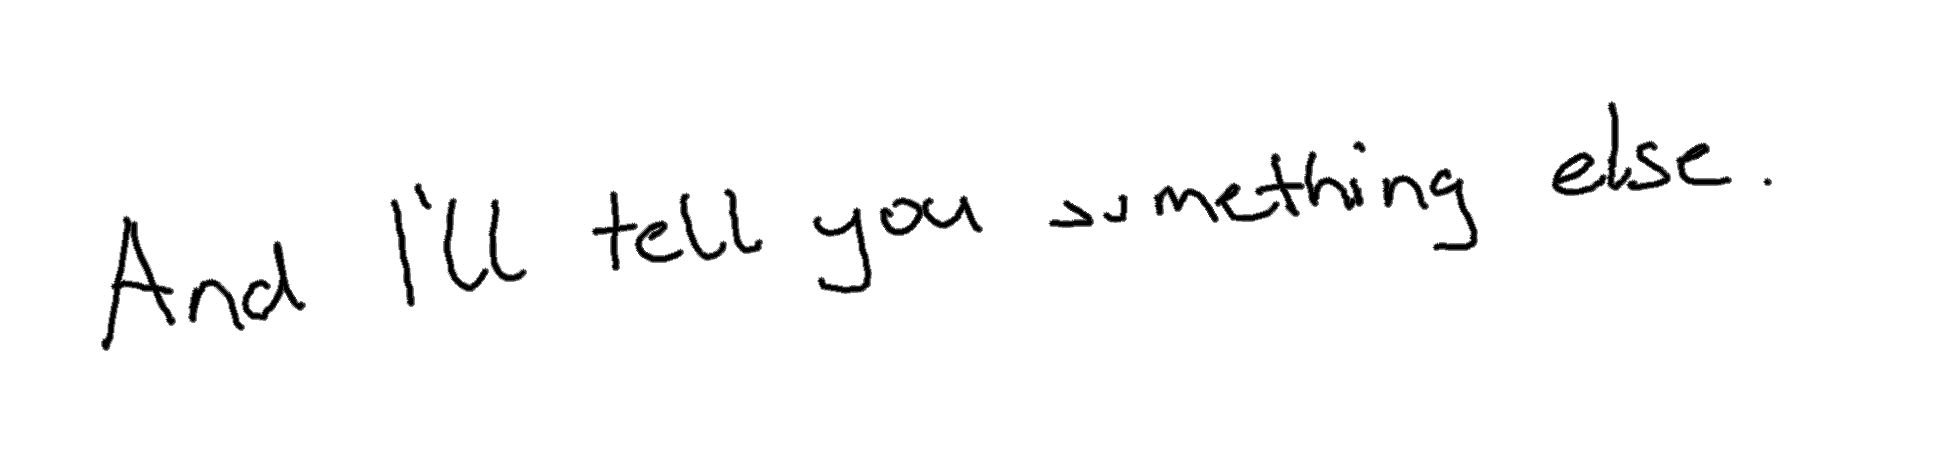 And I'll tell you something else.